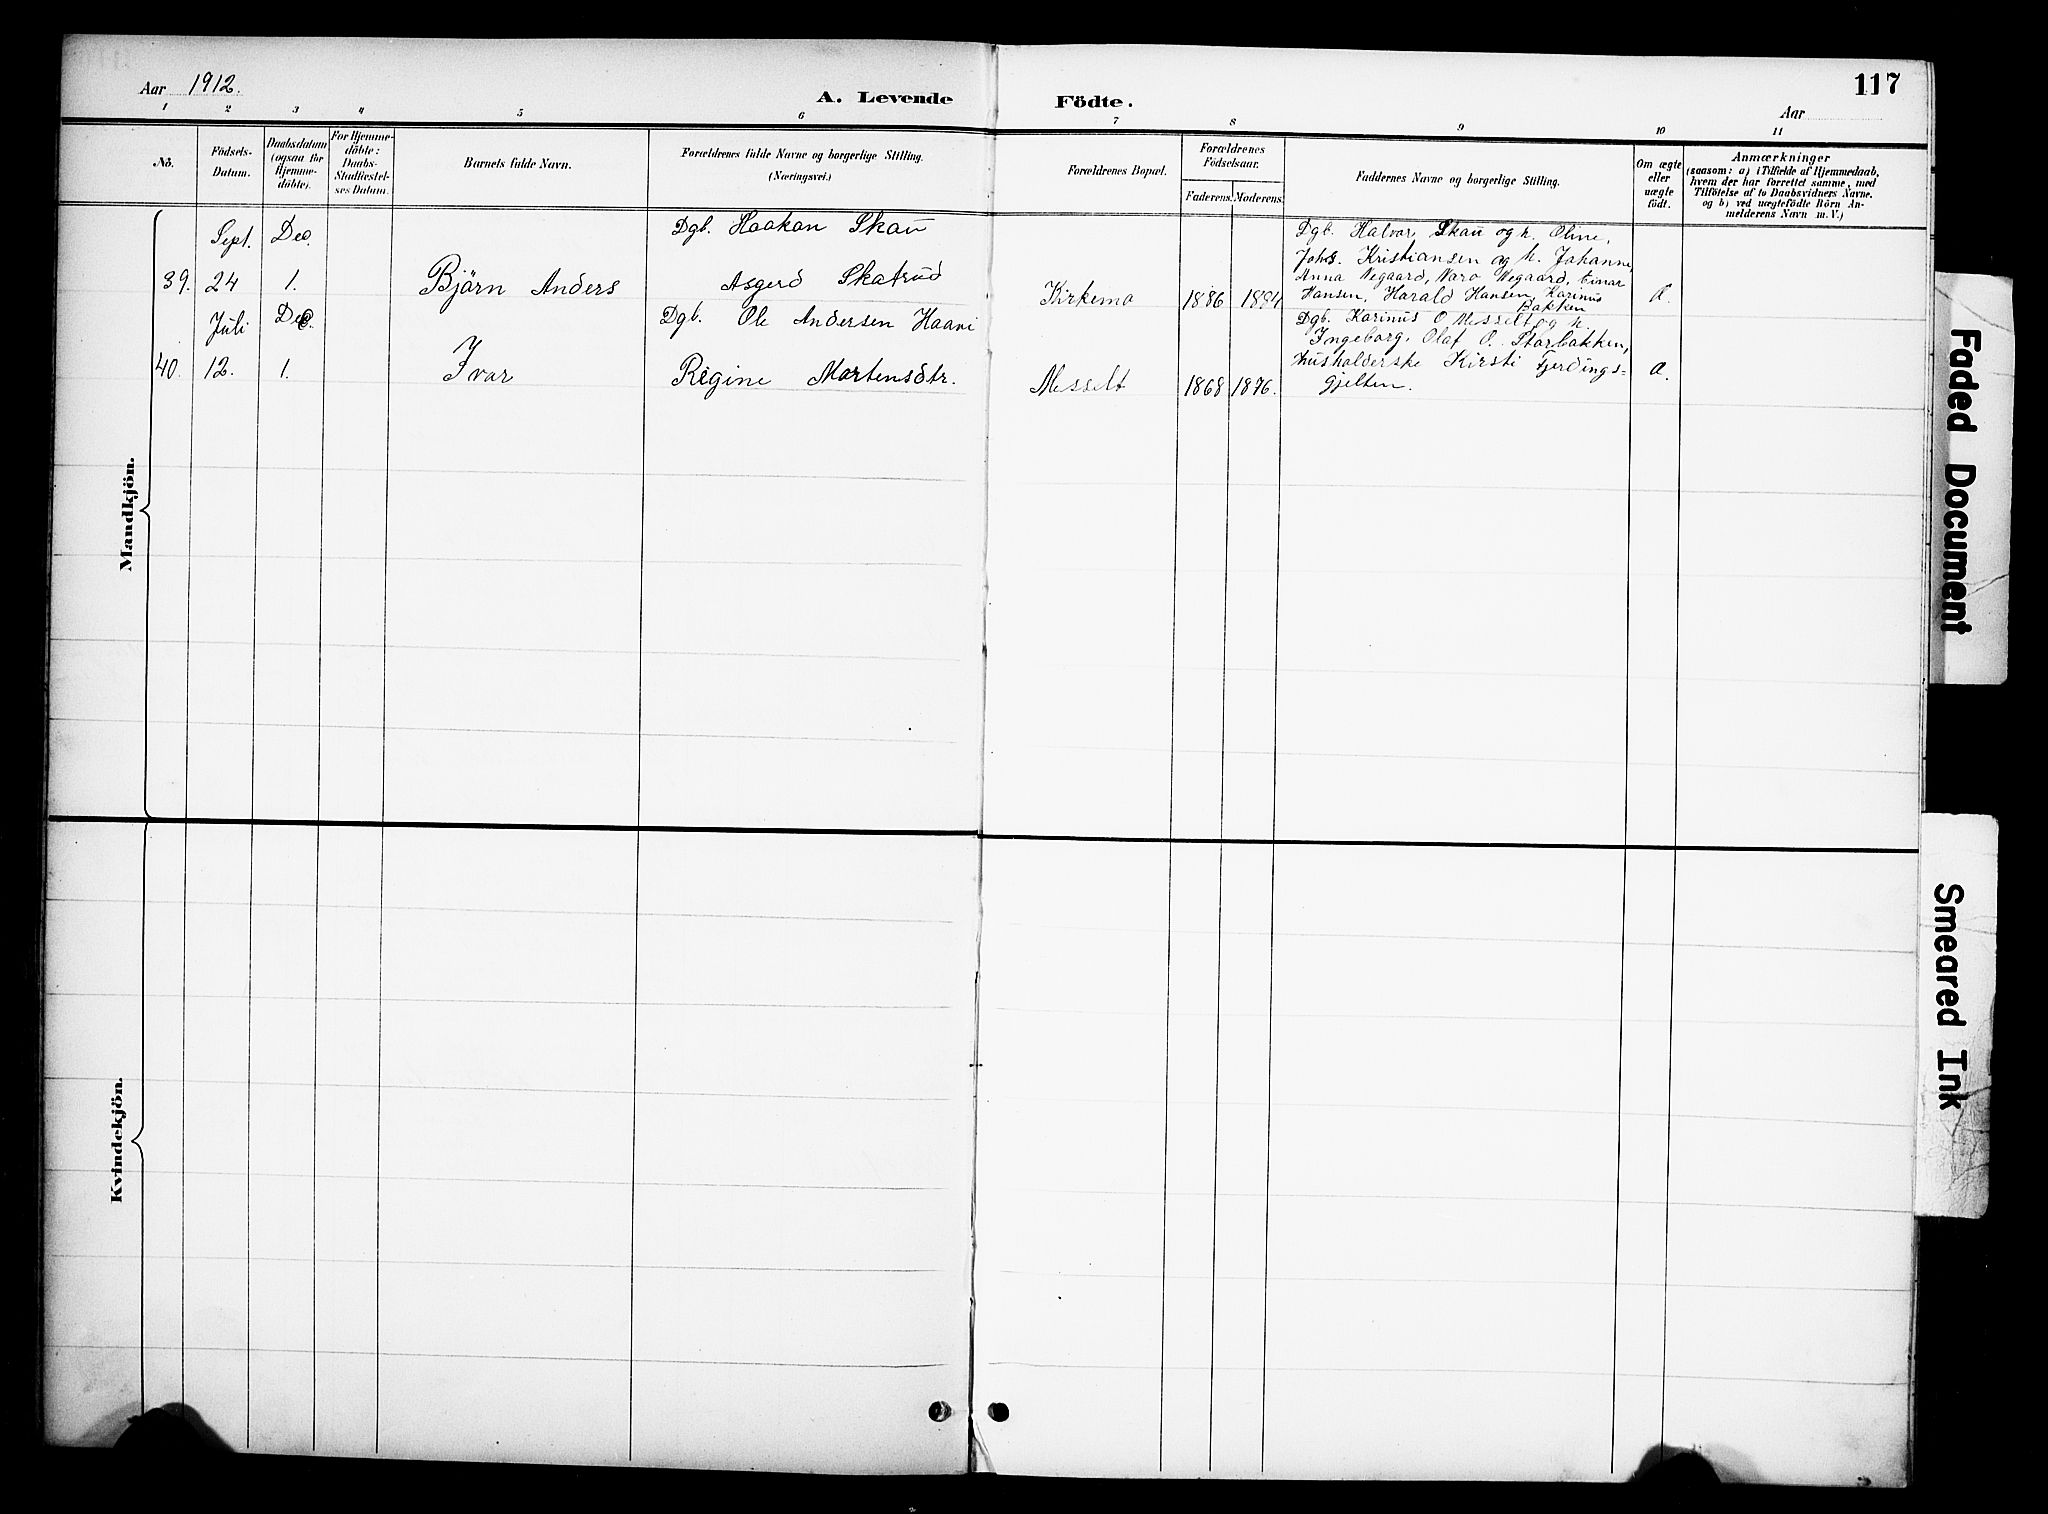 117
Aar 1912.
A. Levende Födte.
Aar
1 2 3 4 5 6 7 8 9 10 11
No.
Födsels-
Datum.
Daabsdatum
(ogsaa for
Hjemme-
döbte).
For Hjemme-
döbte:
Daabs-
Stadfæstel-
ses Datum.
Barnets fulde Navn.
Forældrenes fulde Navne og borgerlige Stilling.
(Næringsvei.)
Forældrenes Bopæl.
Forældrenes
Födselsaar.
Faderens. Moderens.
Faddernes Navne og borgerlige Stilling.
Om ægte
eller
uægte
födt.
Anmærkninger
(saasom: a) i Tilfælde af Hjemmedaab,
hvem der har forrettet samme, med
Tilföielse af to Daabsvidners Navne.
og b) ved uægtefödte Börn An-
melderens Navn m. V.)
Mandkjön.
39.
Sept.
24
Dec.
1.
Björn Anders
Dgb. Haakon Skau
Asgerd Skatrud
Kirkemo
1886 1894
Dgb. Halvor Skau og h. Oline,
Johs. Kristiansen og h. Johanne,
Anna Negaard, Nara Negaard, Einar
Hansen, Harald Hansen, Karinus
Bakken
Æ.
40.
Juli
12.
Dec.
1.
Ivar
Dgb. Ole Andersen Haavi
Regine Mortensdtr.
Messelt
1868 1876.
Dgb. Karinus O. Messelt og h.
Ingeborg, Olaf O. Storbakken,
husholderske Kirsti Fjerdings-
gjelten.
Æ.
Kvindekjön.
Faded Document
Smeared Ink